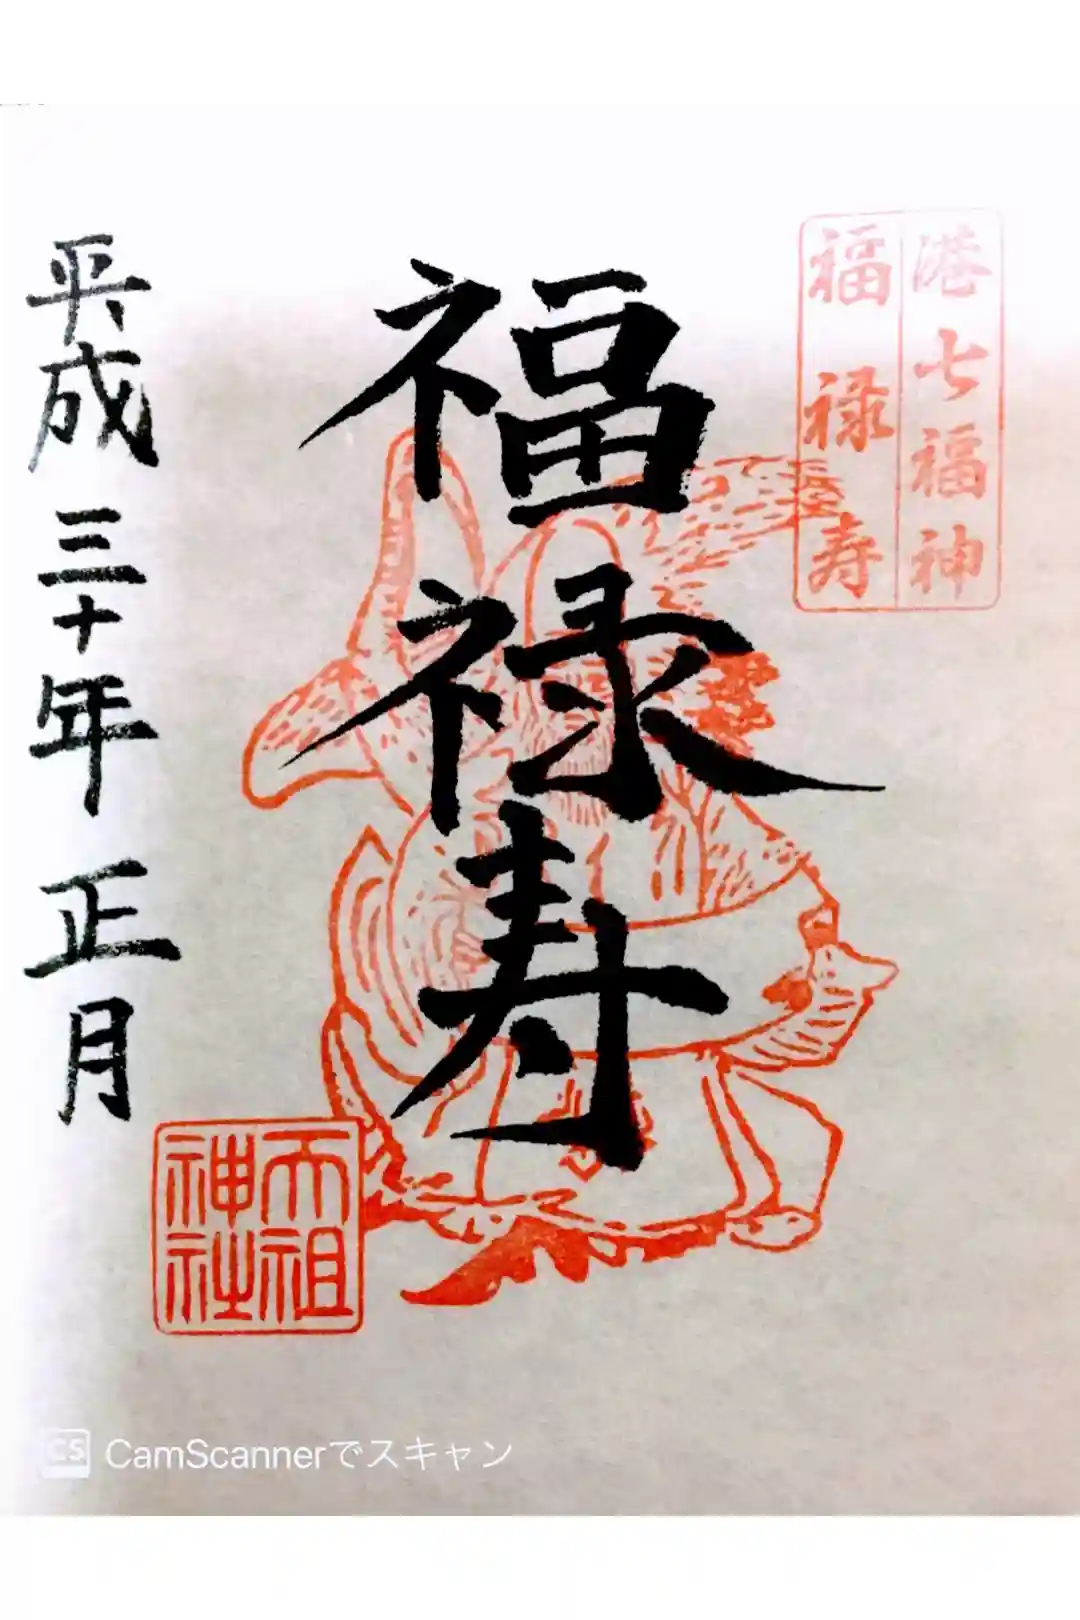 港七福神
福禄寿
福禄寿
平成三十年正月
天祖
神社
CS CamScannerでスキャン